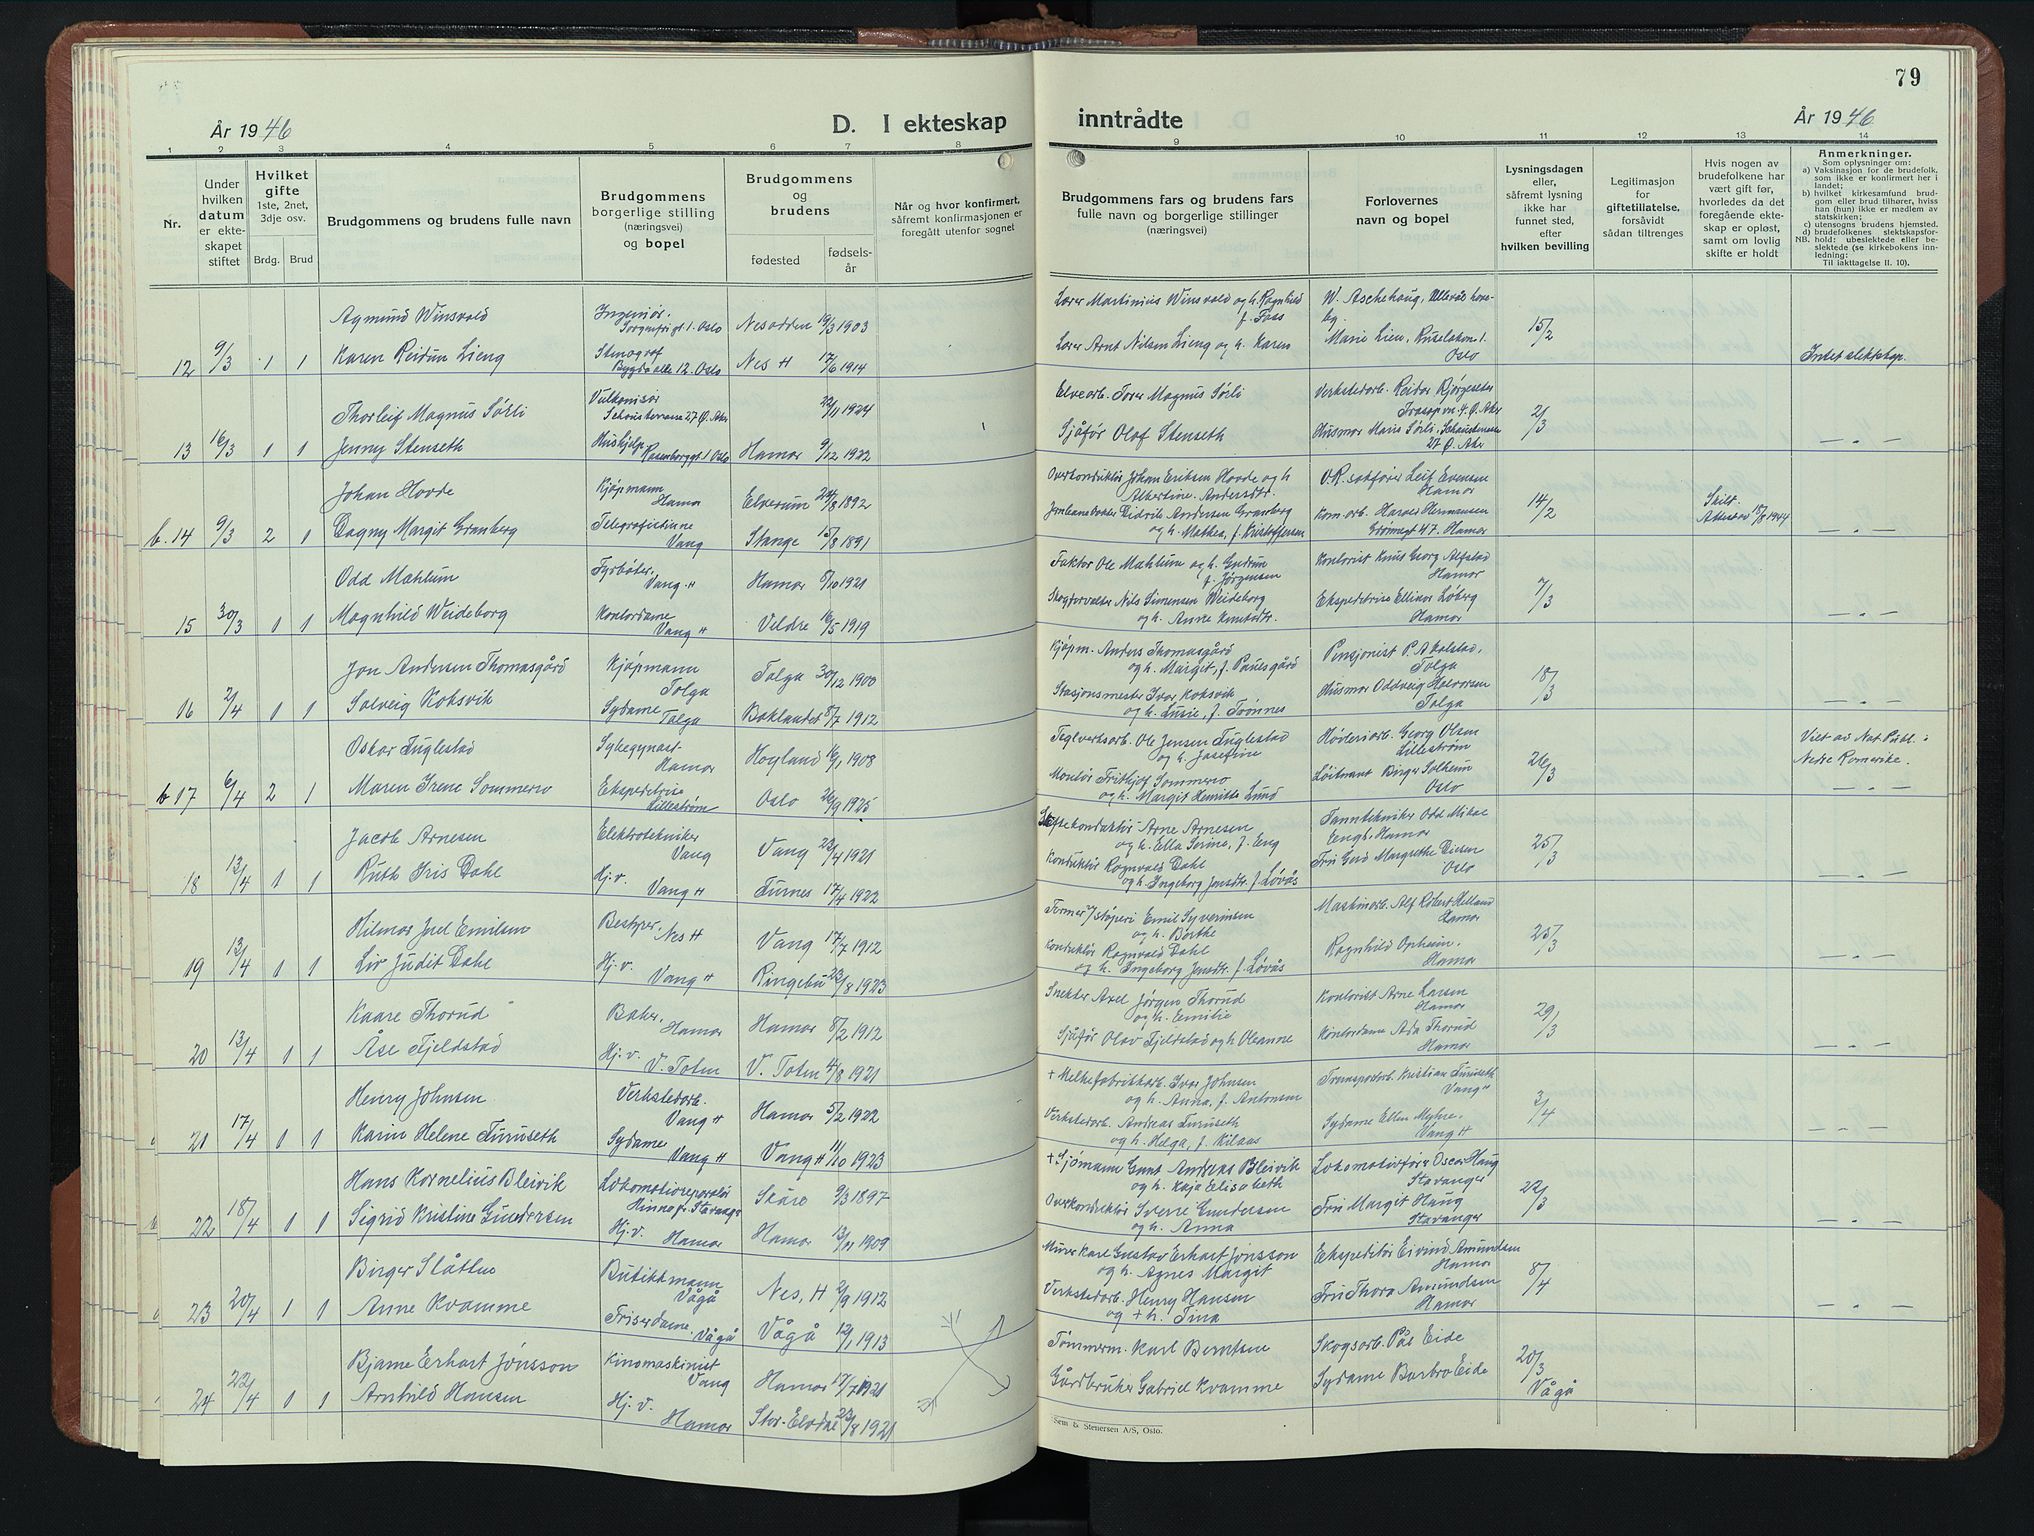 79
År 1946
D. I ekteskap inntrådte
År 1946
1 2 3 4 5 6 7 8 9 10 11 12 13 14
Nr.
Under hvilken datum er ekte-skapet stiftet
Hvilket gifte 1ste, 2net, 3dje osv.
Brdg. Brud
Brudgommens og brudens fulle navn
Brudgommens borgerlige stilling (næringsvei) og bopel
Brudgommens og brudens
fødested
fødsels-år
Når og hvor konfirmert, såfremt konfirmasjonen er foregått utenfor sognet
Brudgommens fars og brudens fars fulle navn og borgerlige stillinger (næringsvei)
Forlovernes navn og bopel
Lysningsdagen eller, såfremt lysning ikke har funnet sted, efter hvilken bevilling
Legitimasjon for giftetillatelse, forsåvidt sådan tiltrenges
Hvis nogen av brudefolkene har vært gift før, hvorledes da det foregående ekte-skap er opløst, samt om lovlig skifte er holdt
Anmerkninger.
Som oplysninger om:
a) Vaksinasjon for de brudefolk, som ikke er konfirmert her i landet;
b) hvilket kirkesamfund brud-gom eller brud tilhører, hviss han (hun) ikke er medlem av statskirken;
c) utensogns brudens hjemsted.
d) brudefolkenes slektskapsfor-
NB. hold: ubeslektede eller be-slektede (se kirkebokens inn-ledning; Til iakttagelse II. 10).
Agmund Winsvold Ingeniør. Sorgenfrigt 1. Oslo Nesodden 19/3 1903 Lærer Martinius Winsvold og h. Ragnhild f. Foss W. Aschehoug, Ullevål have-by.
12 9/3 1 1 Karen Reidun Lieng Stenograf Bygdø alle 12. Oslo Nes H 17/6 1914 Lærer Arnt Nilsen Lieng og h. Karen Marie Lien, Oslo 15/2 Intet slektskap.
Thorleif Magnus Sørli Vulkanisør Schousterrasse 27 Ø. Aker 22/11 1924 Elvearb. Tore Magnus Sørli Verkstedarb. Reidar Bjørgeseter Ø. Aker
13 16/3 1 1 Jenny Stenseth Hushjelp Rosenborggt 1 Oslo Hamar 9/12 1922 Sjåfør Olaf Stenseth Husmor Maria Sørli, 27 Ø. Aker 2/3 — " —
Johan Hovde Kjøpmann Hamar Elverum 24/8 1892 Overkonduktør Johan Eriksen Hovde og h Albertine Andersdtr. O.R. sakfører Leif Evensen Hamar
b. 14 9/3 2 1 Dagny Margit Granberg Telegrafistinne Vang Stange 15/8 1891 Didrik Andersen Granberg og h. Mathea, f. Kristoffersen Kom.arb. Harald Hermansen Grønnegt 47. Hamar 14/2 Skilt. Attestert 18/8 1944 — " —
Odd Mæhlum Fyrbøter, Vang H Hamar 8/10 1921 Faktor Ole Mæhlum og h. Gudrun f. Jørgensen Kontorist Knut Georg Alfstad Hamar
15 30/3 1 1 Magnhild Weideborg Kontordame Vang H Veldre 16/5 1919 Skogforvalter Nils Simensen Weideborg og h. Anne Knutsdtr. Ekspeditrise Ellinor Løberg Hamar 7/3 — " —
Jon Andersen Thomasgård Kjøpmann Tolga Tolga 30/12 1900 Kjøpm. Anders Thomasgård og h. Margit, f. Paulsgård Pensjonist P. A. Kolstad, Tolga
16 2/4 1 1 Solveig Koksvik Sydame Tolga Baklandet 8/7 1912 Stasjonsmester Ivar Koksvik og h. Lusie, f. Trønnes Husmor Oddveig Halvorsen Tolga 18/3 — " —
Oskar Fuglestad Sykegymnast Hamar Høyland 16/1 1908 Teglverksarb. Ole Jensen Fuglestad og h. Josefine Georg Olsen Lillestrøm Viet av Not. Publ. i
b 17 6/4 2 1 Maren Irene Sommero Ekspeditrise Lillestrøm Oslo 26/9 1925 Montør Frithjof Sommero og h. Margit Henritte Lund Løitnant Birger Solheim Oslo 26/3 Nedre Romerike. — " —
Jacob Arnesen Elektrotekniker Vang Vang 23/4 1921 Arne Arnesen og h. Ella Serine, f. Eng Tanntekniker Odd Mikal Hamar
18 13/4 1 1 Ruth Iris Dahl Hj. v. Vang H Furnes 17/4 1922 Konduktør Ragnvald Dahl og h. Ingeborg Jensdtr. f. Løvås Fru Gerd Margrethe Oslo 25/3 — " —
Hilmar Juel Emilsen Bestyrer, Nes H Vang 17/7 1912 Former i støperi Emil Syversen og h. Borthe Maskinarb. Alf Robert Helland Hamar
19 13/4 1 1 Liv Judit Dahl Hj. v. Vang H Ringebu 23/8 1923 Konduktør Ragnvald Dahl og h. Ingeborg Jensdtr. f. Løvås Ragnhild Opheim. Hamar 25/3 — " —
Kaare Thorud Baker, Hamar Hamar 8/2 1912 Snekker Axel Jørgen Thorud og h. Emilie Kontorist Arne Larsen Hamar
20 13/4 1 1 Åse Fjeldstad Hj. v. V. Toten V. Toten 4/8 1921 Sjåfør Olav Fjeldstad og h Oleanne Kontordame Ada Thorud Hamar 29/3 — " —
Henry Johnsen Verkstedarb. Vang H Hamar 5/2 1922 + Melkefabrikkarb. Ivar Johnsen og h. Anna, f. Antonsen Transportarb. Kristian Furuseth Vang H
21 17/4 1 1 Karin Helene Furuseth Sydame Vang H Vang H 11/10 1923 Verkstedarb. Andreas Furuseth og h. Helga, f. Kilaas Sydame Ellen Myhre. Vang H 3/4 — " —
Hans Kornelius Bleivik Lokomotivreparatør Hinna pr. Stavanger Skåre 9/3 1897 + Sjømann Gunt Andreas Bleivik og h. Kaja Elisabeth Lokomotivfører Oscar Haug Stavanger
22 18/4 1 1 Sigrid Kristine Gundersen Hj. v. Hamar Hamar 13/11 1909 Overkonduktør Sverre Gundersen og h. Anna Fru Margit Haug Stavanger 22/3 — " —
Birger Slåtten Butikkmann Vågå Nes, H 2/9 1912 Murer Karl Gustav Erhart Jonsson og h. Agnes Margit Ekspeditør Eivind Amundsen Hamar
23 20/4 1 1 Anne Kvamme Friserdame Vågå Vågå 12/1 1913 Verkstedarb. Henry Hansen og + h. Tina Fru Thora Amundsen Hamar 8/4 — " —
Bjarne Erhart Jonsson Kinomaskinist Vang Hamar 17/7 1921 Tømmerm. Karl Berntsen Skogsarb. Pål Eide
24 22/4 1 1 Arnhild Hansen Hj. v. Hamar Stor-Elvdal 23/8 1921 Gårdbruker Gabriel Kvamme Sydame Barbro Eide 20/3 Vågå
Sem & Stenersen A/S, Oslo.